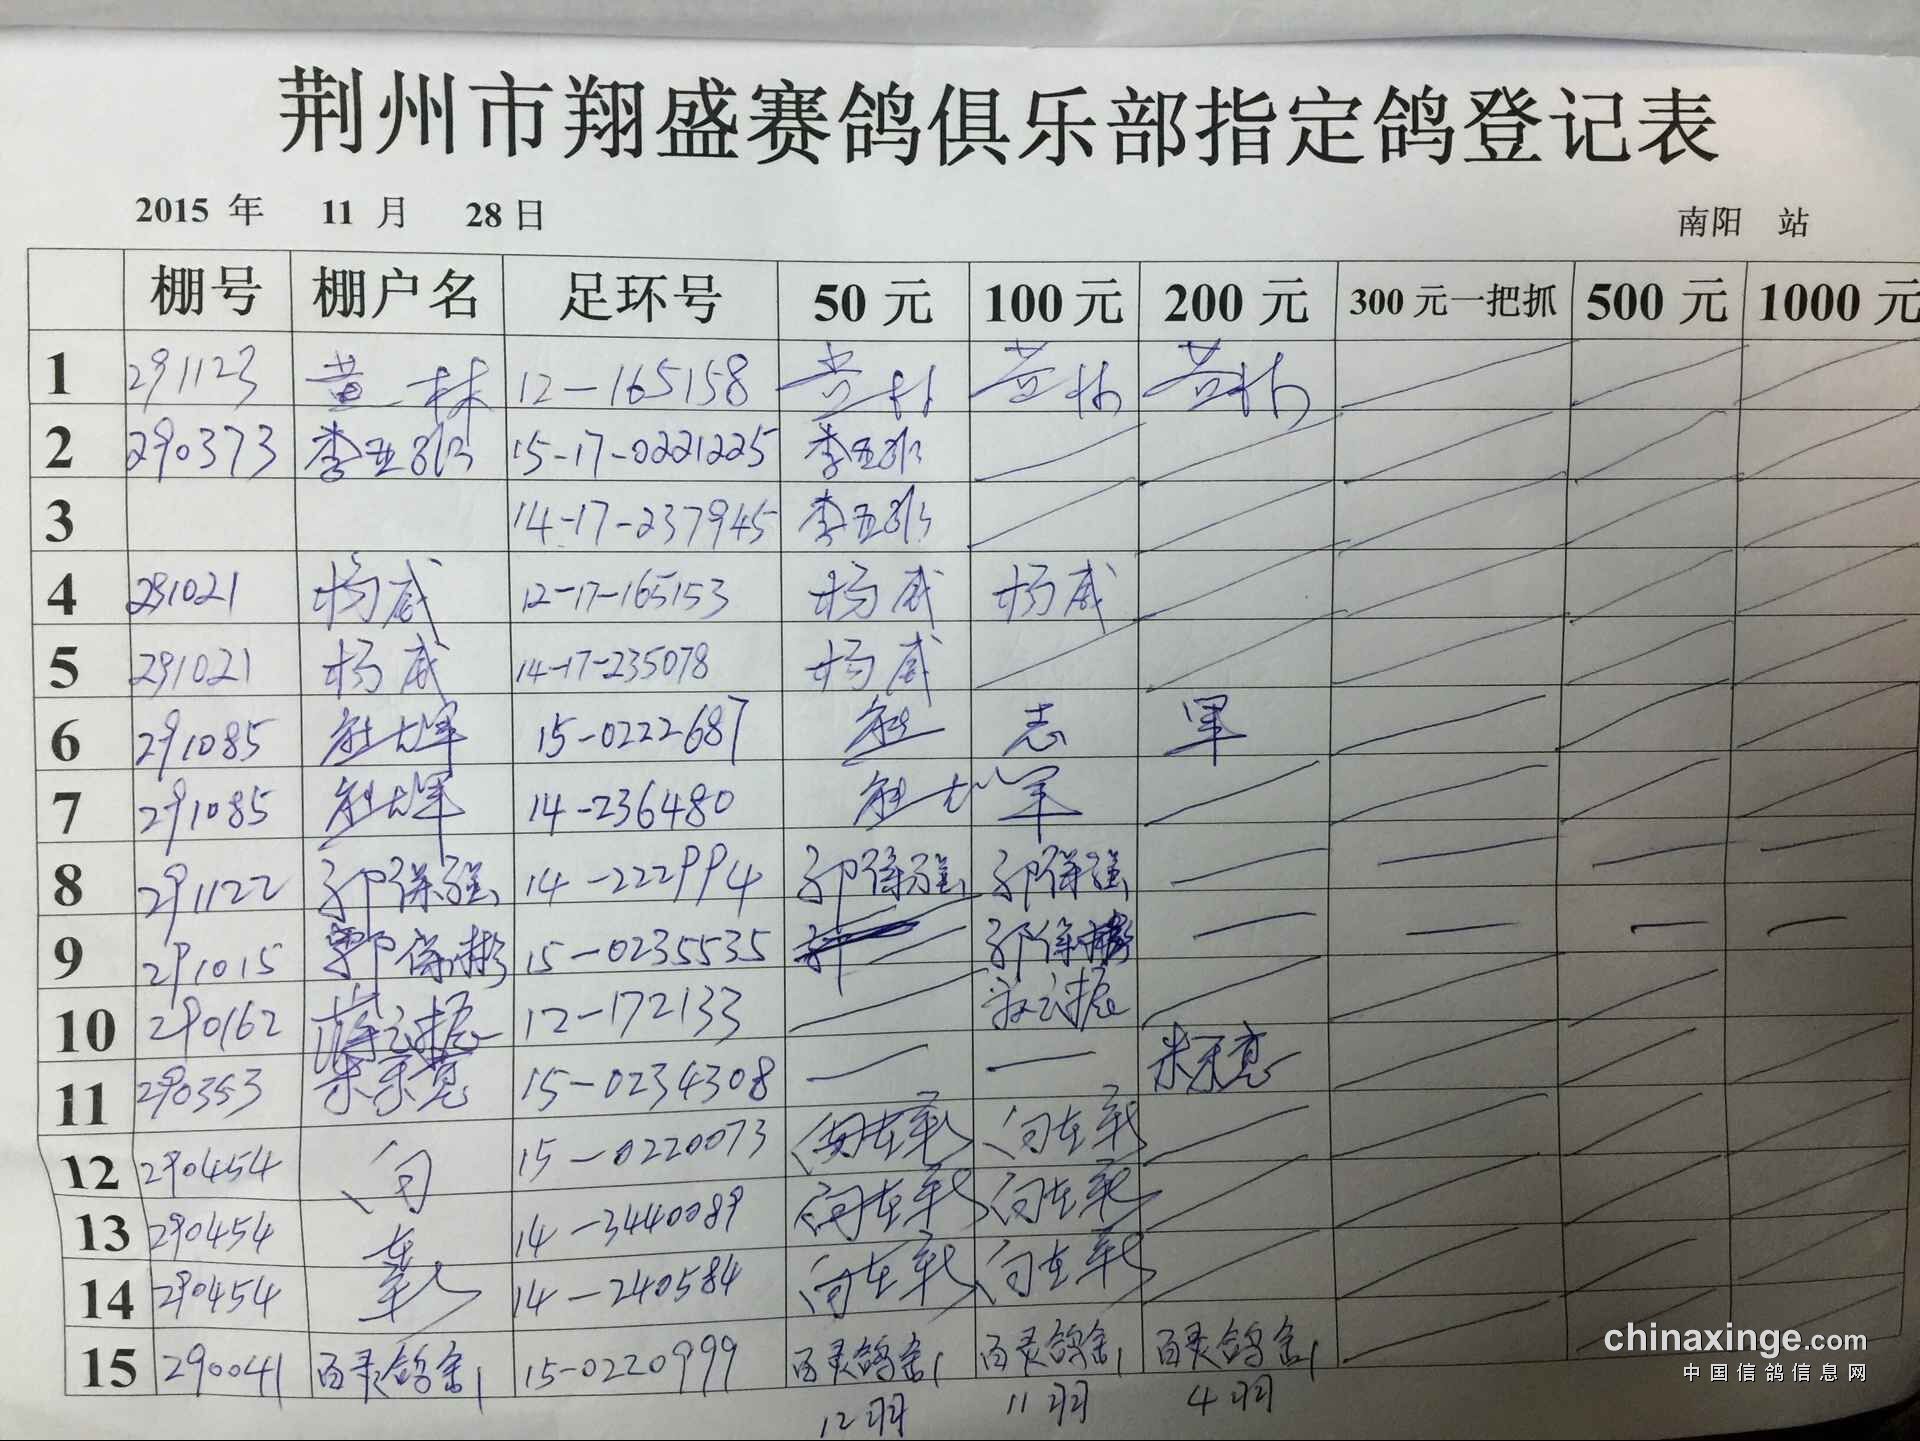 荆州市翔盛赛鸽俱乐部指定鸽登记表
2015 年 11 月 28 日 南阳 站
棚号 棚户名 足环号 50 元 100 元 200 元 300 元一把抓 500 元 1000 元
1 291123 黄林 12-165158 黄林 黄林 黄林
2 290373 李亚 15-17-0221225 李亚
3 14-17-237945 李亚
4 291021 杨威 12-17-165153 杨威 杨威
5 291021 杨威 14-17-235078 杨威
6 291085 熊志军 15-0222687 熊 志 军
7 291085 熊志军 14-236480 熊志军
8 291122 郭保强 14-222994 郭保强 郭保强
9 291015 郭保彬 15-0235535 郭保彬
10 290162 蒋云振 12-172133 云振
11 290353 朱亮 15-0234308 朱亮
12 290454 向 15-0220073 向在新 向在新
13 290454 在 14-3440089 向在新 向在新
14 290454 新 14-240584 向在新 向在新
15 290041 百灵鸽舍 15-0220999 百灵鸽舍 百灵鸽舍 百灵鸽舍
12羽 11羽 4羽
chinaxinge.com
中国信鸽信息网